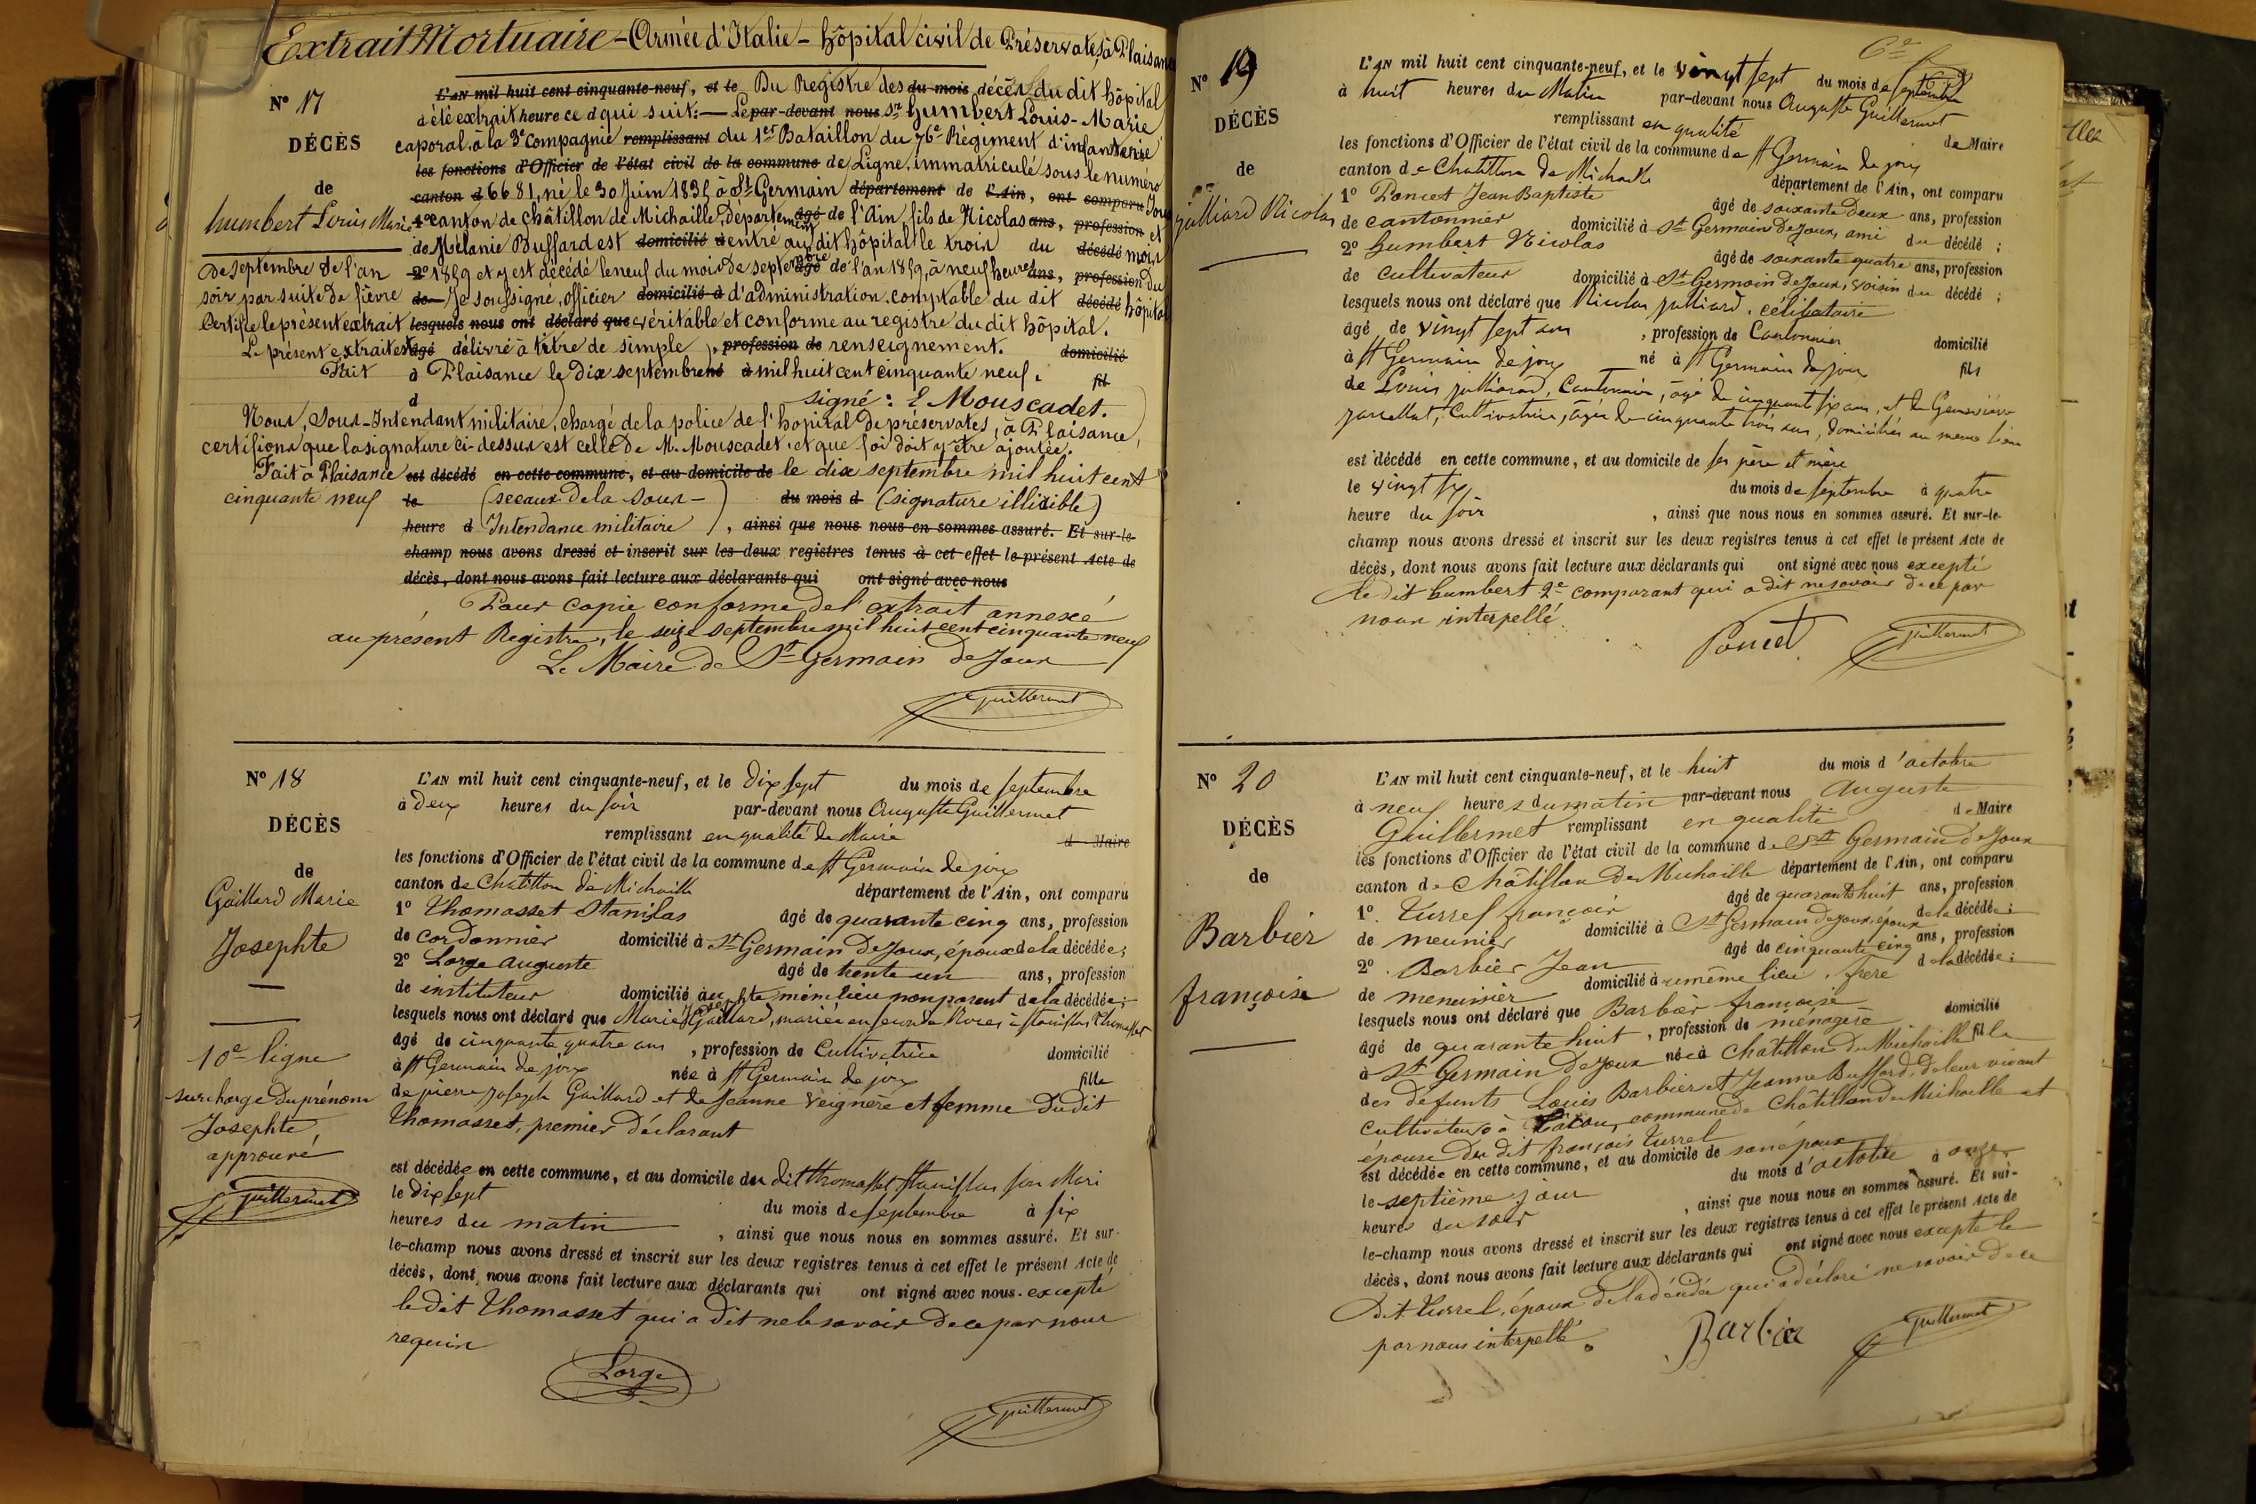 Extrait Mortuaire - Armée d'Italie - hôpital civil de Préservates, à Plaisance
L'AN mil huit cent cinquante-neuf, et le Du Registre des du mois décès du dit hôpital
N° 17
a été extrait heure ce d qui suit: — Le par-devant nous Sr humbert Louis-Marie
DÉCÈS
caporal, à la 3e compagnie remplissant du 1er Bataillon du 76e Régiment d'infanterie
les fonctions d'Officier de l'état civil de la commune de Ligne, immatriculé sous le numéro
de
canton d 6681, né le 30 Juin 1835 à St Germain département de l'Ain, ont comparu Joux
humbert Louis Marie
1° canton de châtillon de Michaille, Département âgé de l'Ain, fils de Nicolas ans, profession et
de Mélanie Buffard est domicilié à entré au dit hôpital le trois du décédé mois
De septembre de l'an 2° 1859 et y est décédé le neuf du mois de septembre âgé de l'an 1859, à neuf heures ans, profession du
soir par suite de fièvre de — Je soussigné, officier domicilié à d'administration, comptable du dit décédé hôpital
Certifie le présent extrait lesquels nous ont déclaré que véritable et conforme au registre du dit hôpital.
Le présent extrait est âgé délivré à titre de simple, profession de renseignement. domicilié
Fait à Plaisance le dix septembre né à mil huit cent cinquante neuf. fil
d signé: E Mouscadet.
Nous, Sous-Intendant militaire, chargé de la police de l'hopital de préservates, à Plaisance,
certifions que la signature ci-dessus est celle de M. Mouscadet, et que foi doit y être ajoutée.
Fait à Plaisance est décédé en cette commune, et au domicile de le dix septembre mil huit cent
cinquante neuf le (sceaux de la sous- du mois d (signature illisible)
heure d Intendance militaire), ainsi que nous nous en sommes assuré. Et sur-le-
champ nous avons dressé et inscrit sur les deux registres tenus à cet effet le présent Acte de
décès, dont nous avons fait lecture aux déclarants qui ont signé avec nous
Pour copie conforme de l'extrait annexé
au présent Registre, le seize septembre mil huit cent cinquante neuf
Le Maire de St Germain de Joux
Guillermet
N° 18
L'AN mil huit cent cinquante-neuf, et le dix sept du mois de septembre
à deux heures du soir par-devant nous Auguste Guillermet
DÉCÈS
remplissant en qualité de Maire d Maire
de
les fonctions d'Officier de l'état civil de la commune de St Germain de joux
canton de Châtillon de Michaille département de l'Ain, ont comparu
Gaillard Marie
1° Thomasset Stanislas âgé de quarante cinq ans, profession
Josephte
de cordonnier domicilié à St Germain De Joux, époux de la décédée;
2° Lorge Auguste âgé de trente un ans, profession
de instituteur domicilié au même lieu non parent de la décédée;
lesquels nous ont déclaré que Marie Josephte Gaillard, mariée en seconde Noces à Stanislas Thomasset
âgé de cinquante quatre ans, profession de Cultivatrice domicilié
10e ligne
à St Germain de joux née à St Germain de joux fille
surcharge du prénom
de pierre joseph Gaillard et de Jeanne Veignère et femme Dudit
Josephte,
Thomasset, premier déclarant
approuvé
est décédée en cette commune, et au domicile du dit thomasset Stanislas son Mari
Guillermet
le dix sept du mois de septembre à six
heures du matin, ainsi que nous nous en sommes assuré. Et sur-
le-champ nous avons dressé et inscrit sur les deux registres tenus à cet effet le présent Acte de
décès, dont nous avons fait lecture aux déclarants qui ont signé avec nous. excepté
le dit Thomasset qui a dit ne le savoir de ce par nous
requis
Lorge
Guillermet
N° 19
L'AN mil huit cent cinquante-neuf, et le vingt sept du mois de septembre
à huit heures du Matin par-devant nous Auguste Guillermet
DÉCÈS
remplissant en qualité de Maire
les fonctions d'Officier de l'état civil de la commune de St Germain de joux
de
canton de Chatillon de Michaille département de l'Ain, ont comparu
julliard Nicolas
1° Poncet Jean Baptiste âgé de soixante deux ans, profession
de cantonnier domicilié à St Germain De Joux, ami du décédé;
2° humbert Nicolas âgé de soixante quatre ans, profession
de cultivateur domicilié à St Germain de Joux, voisin du décédé;
lesquels nous ont déclaré que Nicolas julliard, célibataire
âgé de vingt sept ans, profession de Cantonnier domicilié
à St Germain de joux né à St Germain de joux fils
de Louis julliard, Cantonnier, âgé de cinquante six ans, et de Geneviève
, Cultivatrice, âgée de cinquante trois ans, domiciliés au meme lieu
est décédé en cette commune, et au domicile de ses père et mère
le vingt six du mois de septembre à quatre
heure du soir, ainsi que nous nous en sommes assuré. Et sur-le-
champ nous avons dressé et inscrit sur les deux registres tenus à cet effet le présent Acte de
décès, dont nous avons fait lecture aux déclarants qui ont signé avec nous excepté
le dit humbert 2e comparant qui a dit ne savoir de ce par
nous interpellé.
Poncet Guillermet
N° 20
L'AN mil huit cent cinquante-neuf, et le huit du mois d'octobre
à neuf heures du matin par-devant nous Auguste
DÉCÈS
Guillermet remplissant en qualité de Maire
les fonctions d'Officier de l'état civil de la commune de St Germain de Joux
de
canton de Châtillon De Michaille département de l'Ain, ont comparu
1° Turrel françois âgé de quarante huit ans, profession
Barbier
de meunier domicilié à St Germain de joux, époux de la décédée;
2° Barbier Jean âgé de cinquante cinq ans, profession
françoise
de menuisier domicilié à u même lieu, frère de la décédée;
lesquels nous ont déclaré que Barbier françoise
âgé de quarante huit, profession de ménagère domicilié
à St Germain De Joux née à Châtillon de Michaille fille
des défunts Louis Barbier et Jeanne Buffard, de leur vivant
Cultivateurs à commune de Châtillon de Michaille et
épouse du dit françois Turrel
est décédée en cette commune, et au domicile de son époux
le septième jour du mois d'octobre à onze
heures du soir, ainsi que nous nous en sommes assuré. Et sur-
le-champ nous avons dressé et inscrit sur les deux registres tenus à cet effet le présent Acte de
décès, dont nous avons fait lecture aux déclarants qui ont signé avec nous excepté le
Dit Turrel, époux de la décédée qui a déclaré ne savoir de ce
par nous interpellé.
Barbier Guillermet